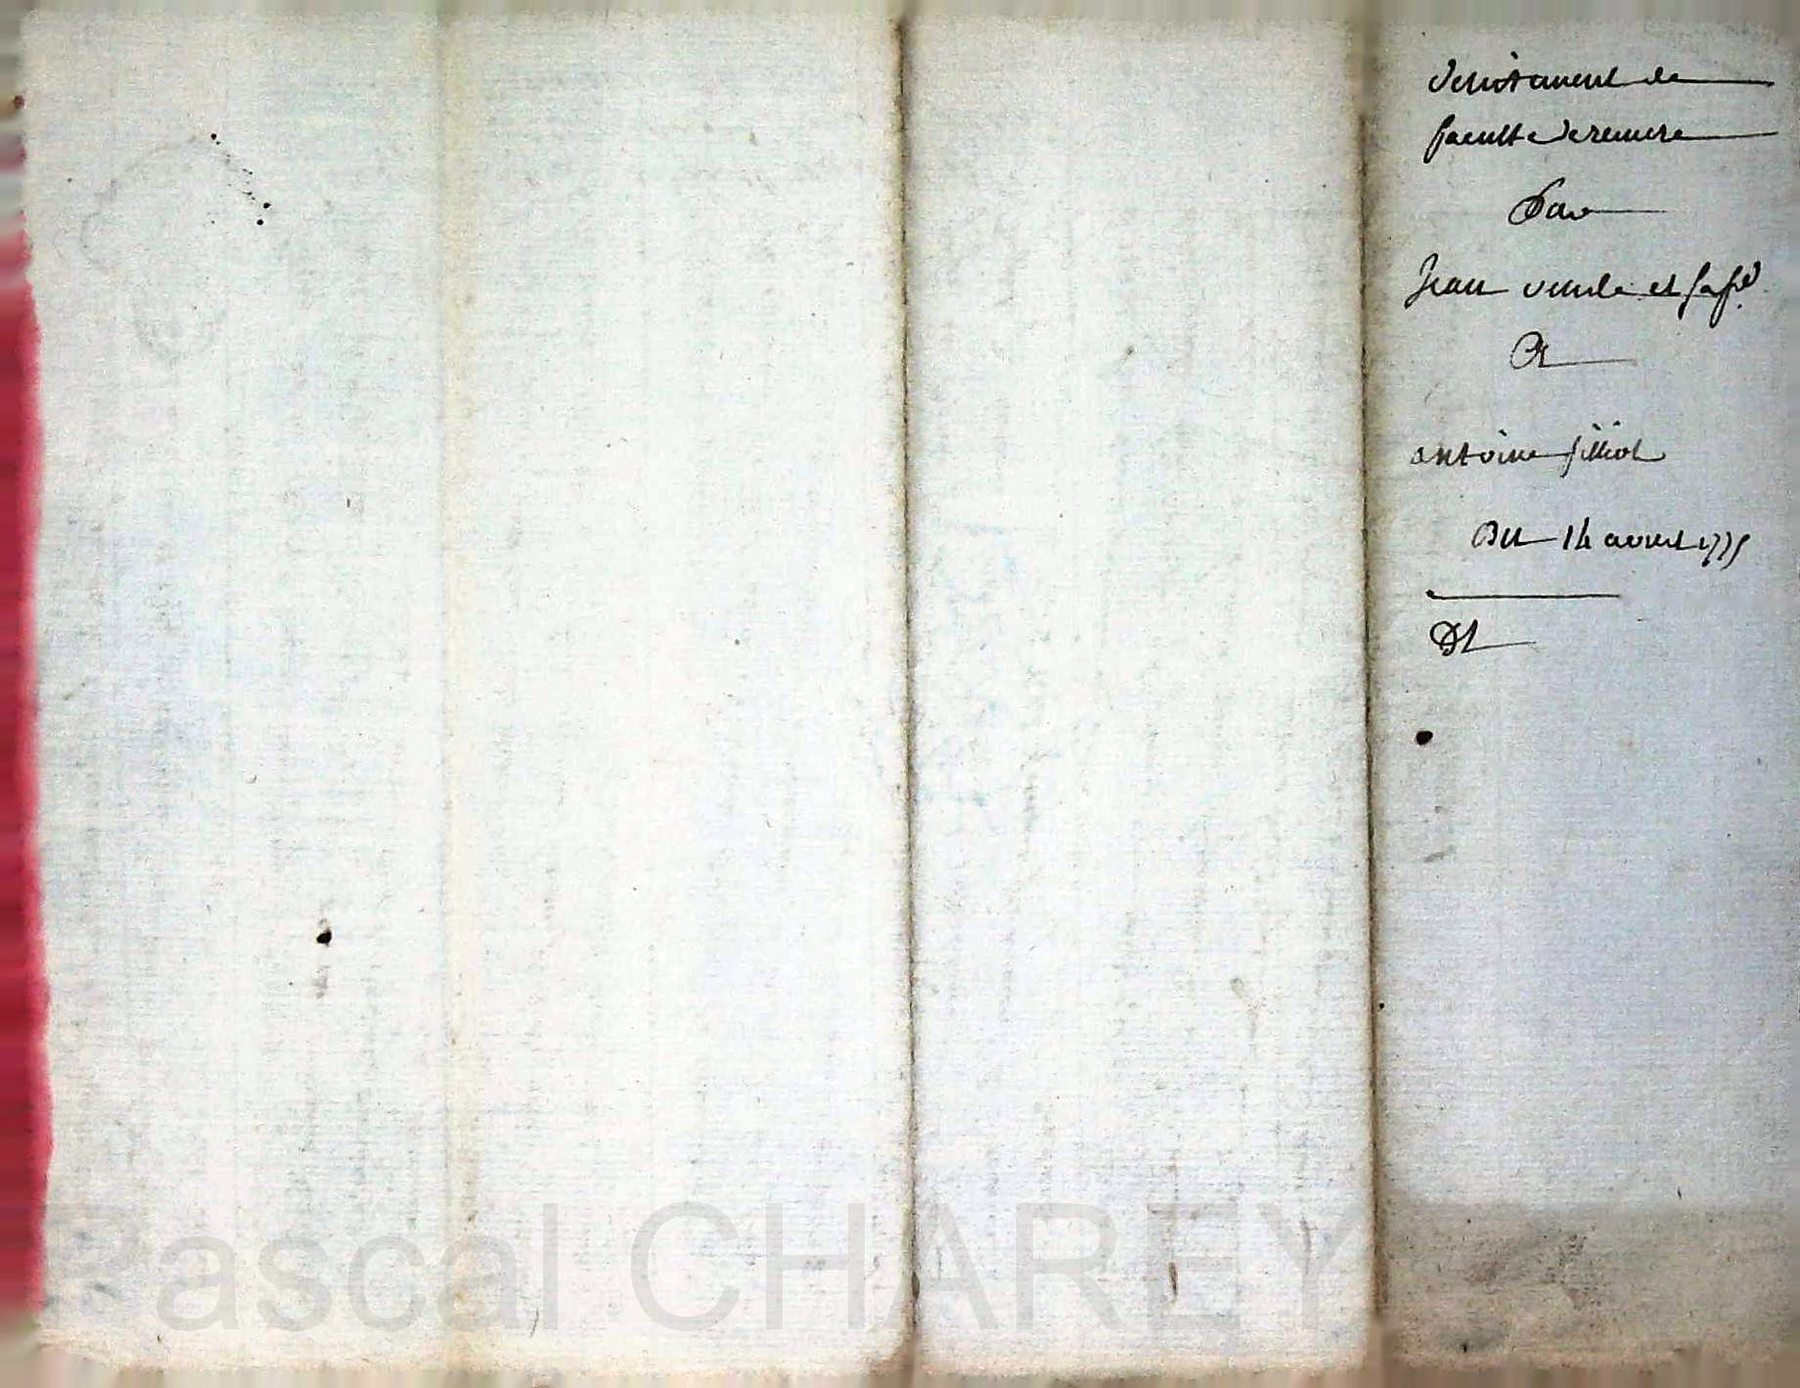 desistament de
faculte de remere
Par
Jean et sa fe
A
antoine filliol
Du 14 avril 1775
Pascal CHAREY